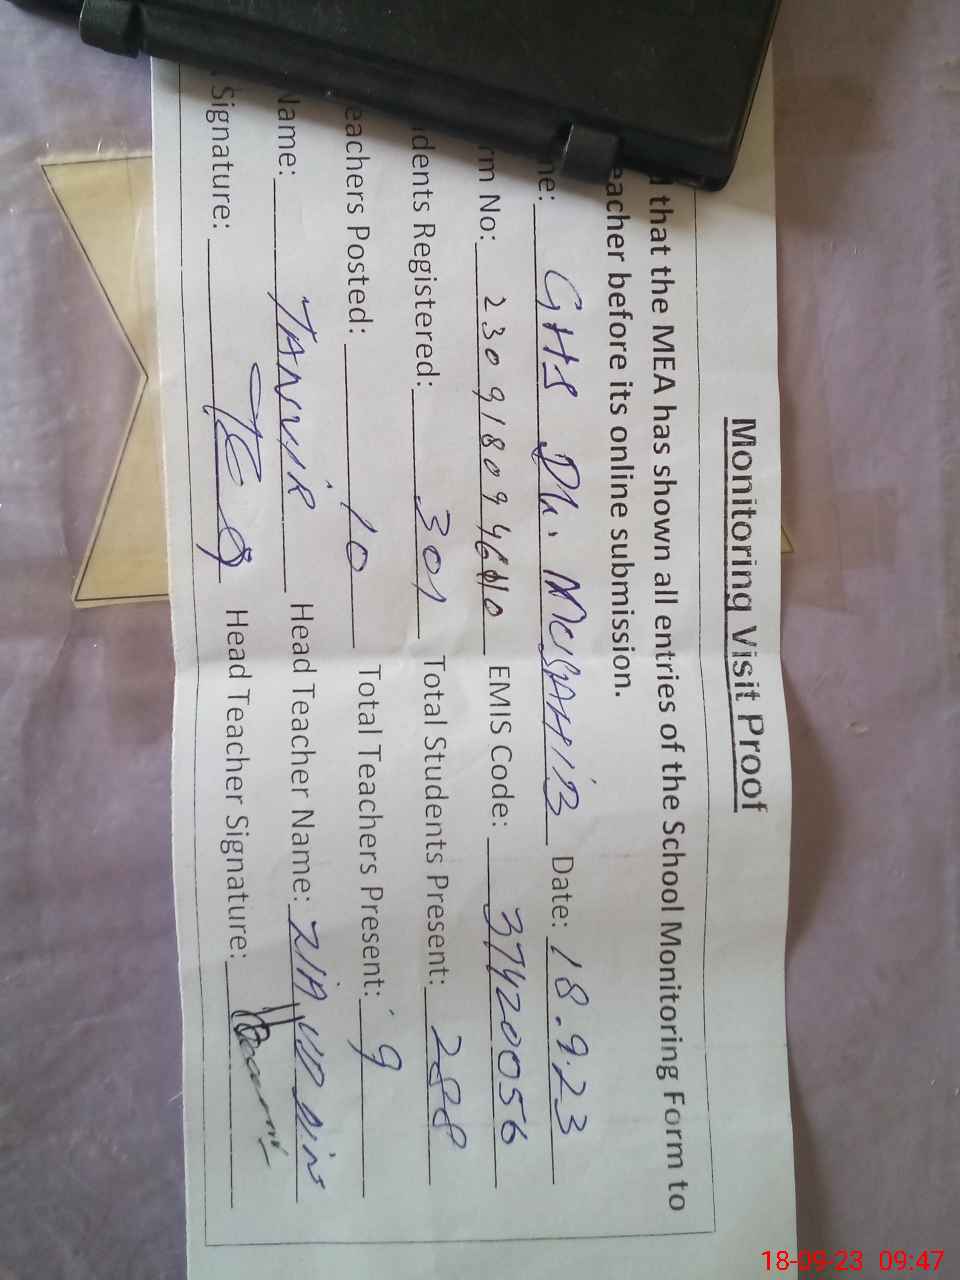 Monitoring Visit Proof
that the MEA has shown all entries of the School Monitoring Form to
eacher before its online submission.
me: GHS Dk. MUSAHIB Date: 18.9.23
rm No: EMIS Code: 37420056
dents Registered: 301 Total Students Present: 288
eachers Posted: 10 Total Teachers Present: 9
Name: TANVIR Head Teacher Name: ZIA UD DIN
Signature: Head Teacher Signature:
18-09-23 09:47